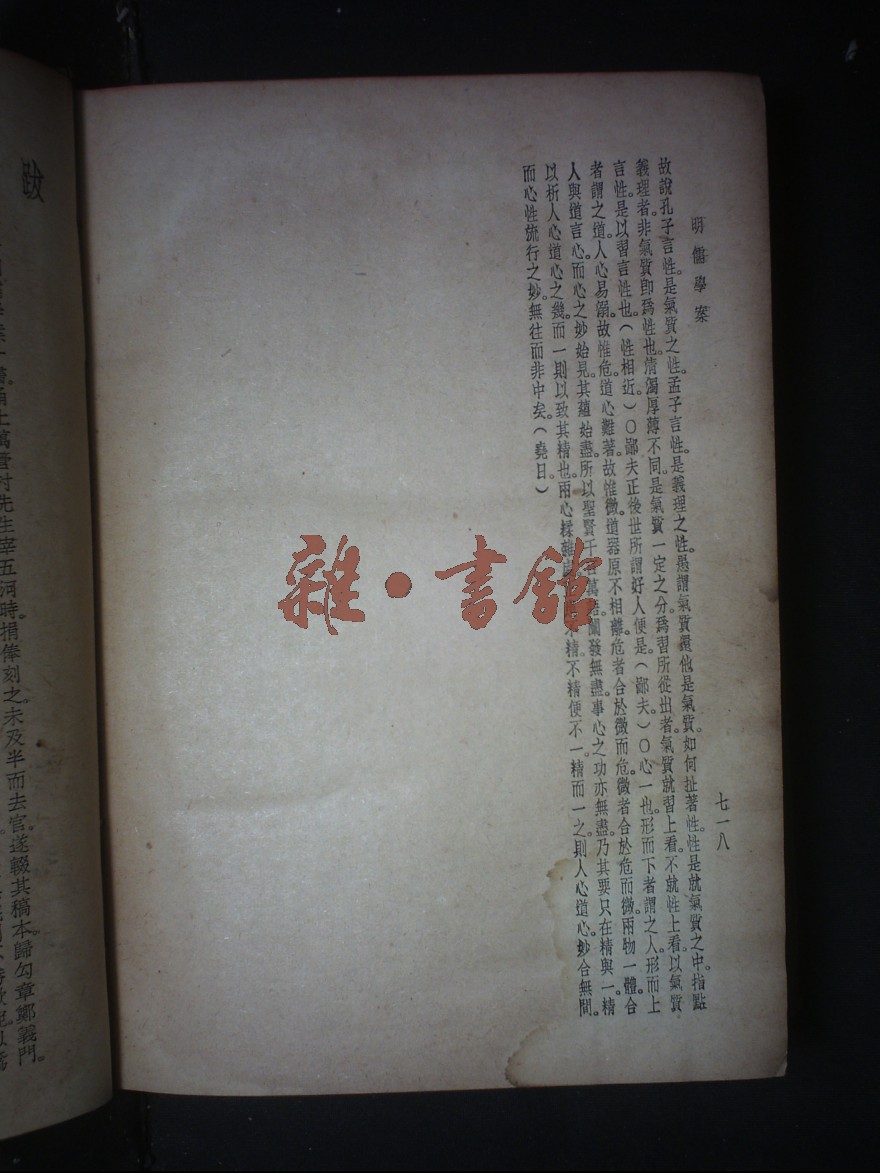 明儒學案
七一八
故說孔子言性。是氣質之性。孟子言性。是義理之性。愚謂氣質還他是氣質。如何扯著性。性是就氣質之中。指點
義理者。非氣質即爲性也。淸濁厚薄不同。是氣質一定之分。爲習所從出者。氣質就習上看。不就性上看。以氣質
言性。是以習言性也。（性相近）〇鄙夫正後世所謂好人便是（鄙夫。）〇心一也。形而下者謂之人。形而上
者謂之道。人心易溺。故惟危。道心難著。故惟微。道器原不相離。危者合於微而危。微者合於危而微。兩物一體。合
人與道言心。而心之妙始見。其蘊始盡。所以聖賢千言萬語。闡發無盡。事心之功亦無盡。乃其要只在精與一。精
以析人心道心之幾。而一則以致其精也。兩心糅雜精。不精便不一。精而一之。則人心道心。妙合無間。
而心性流行之妙。無往而非中矣。（堯曰。）
雜·書館
跋
萬管村先生宰五河時。捐俸刻之。未及半而去官。遂輟其稿本。歸勾章鄭義門。